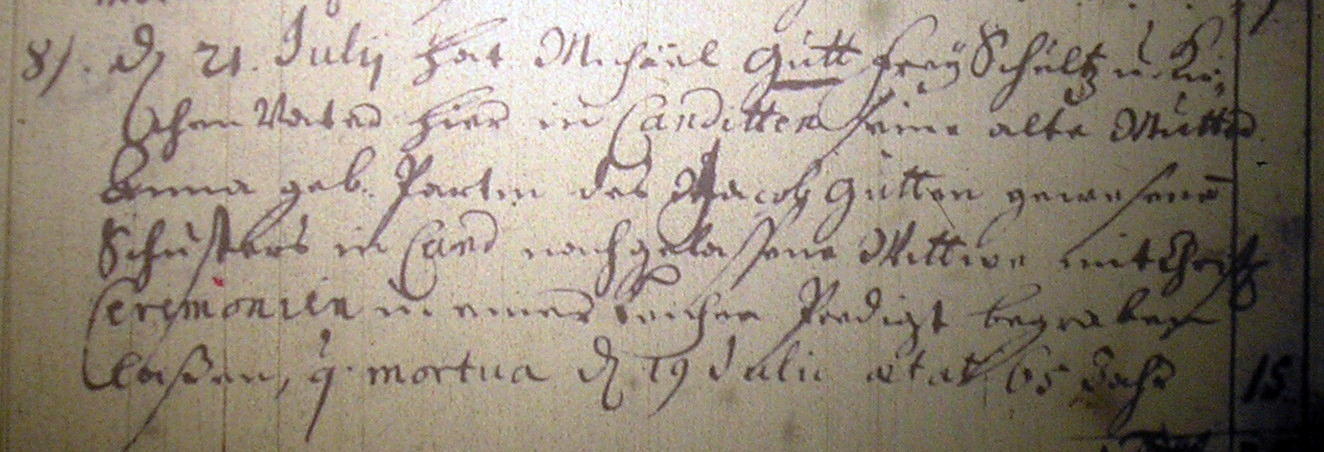 8). d 21. Julij hat Michäel Gutt frey Schultz u. Kir-
chen Vater hier in Canditten seine alte Mutter
Anna geb. Partin des Jacob Gutten gewesene
Schusters in Cand nachgelassene Wittwe mit Christl.
Ceremonien u einer Leichen Predigt begraben
laßen, q. mortua d 19 Julii ætat. 65 Jahr 15.